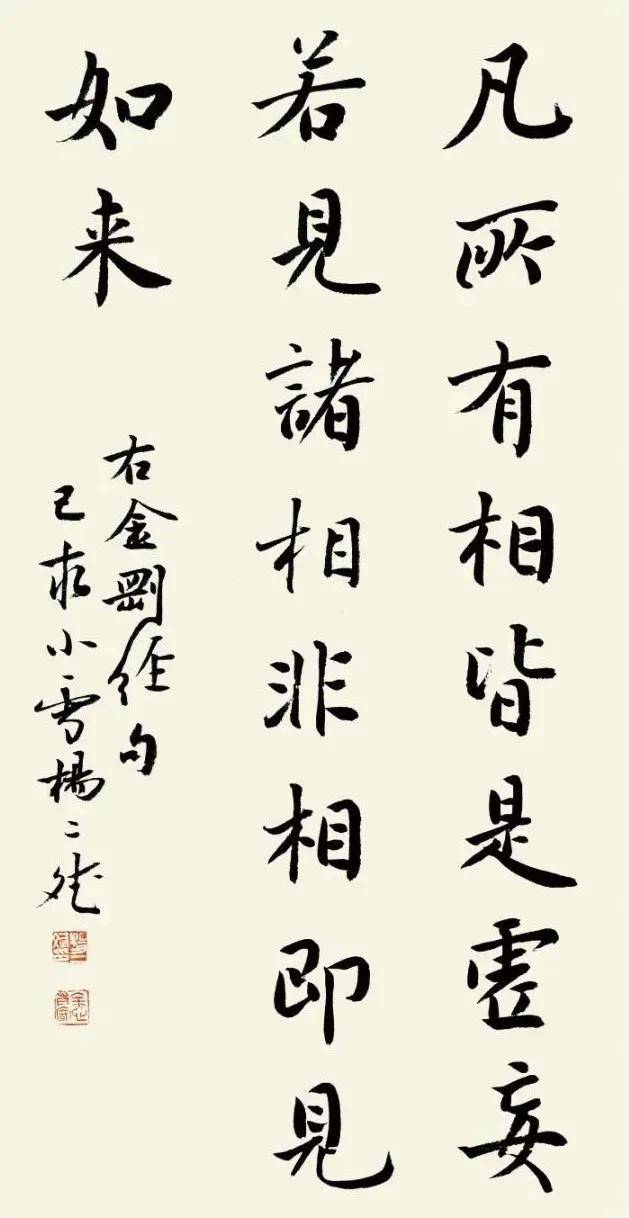 凡所有相皆是虛妄
若見諸相非相即見
如来
右金剛經句
己亥小雪楊二斌